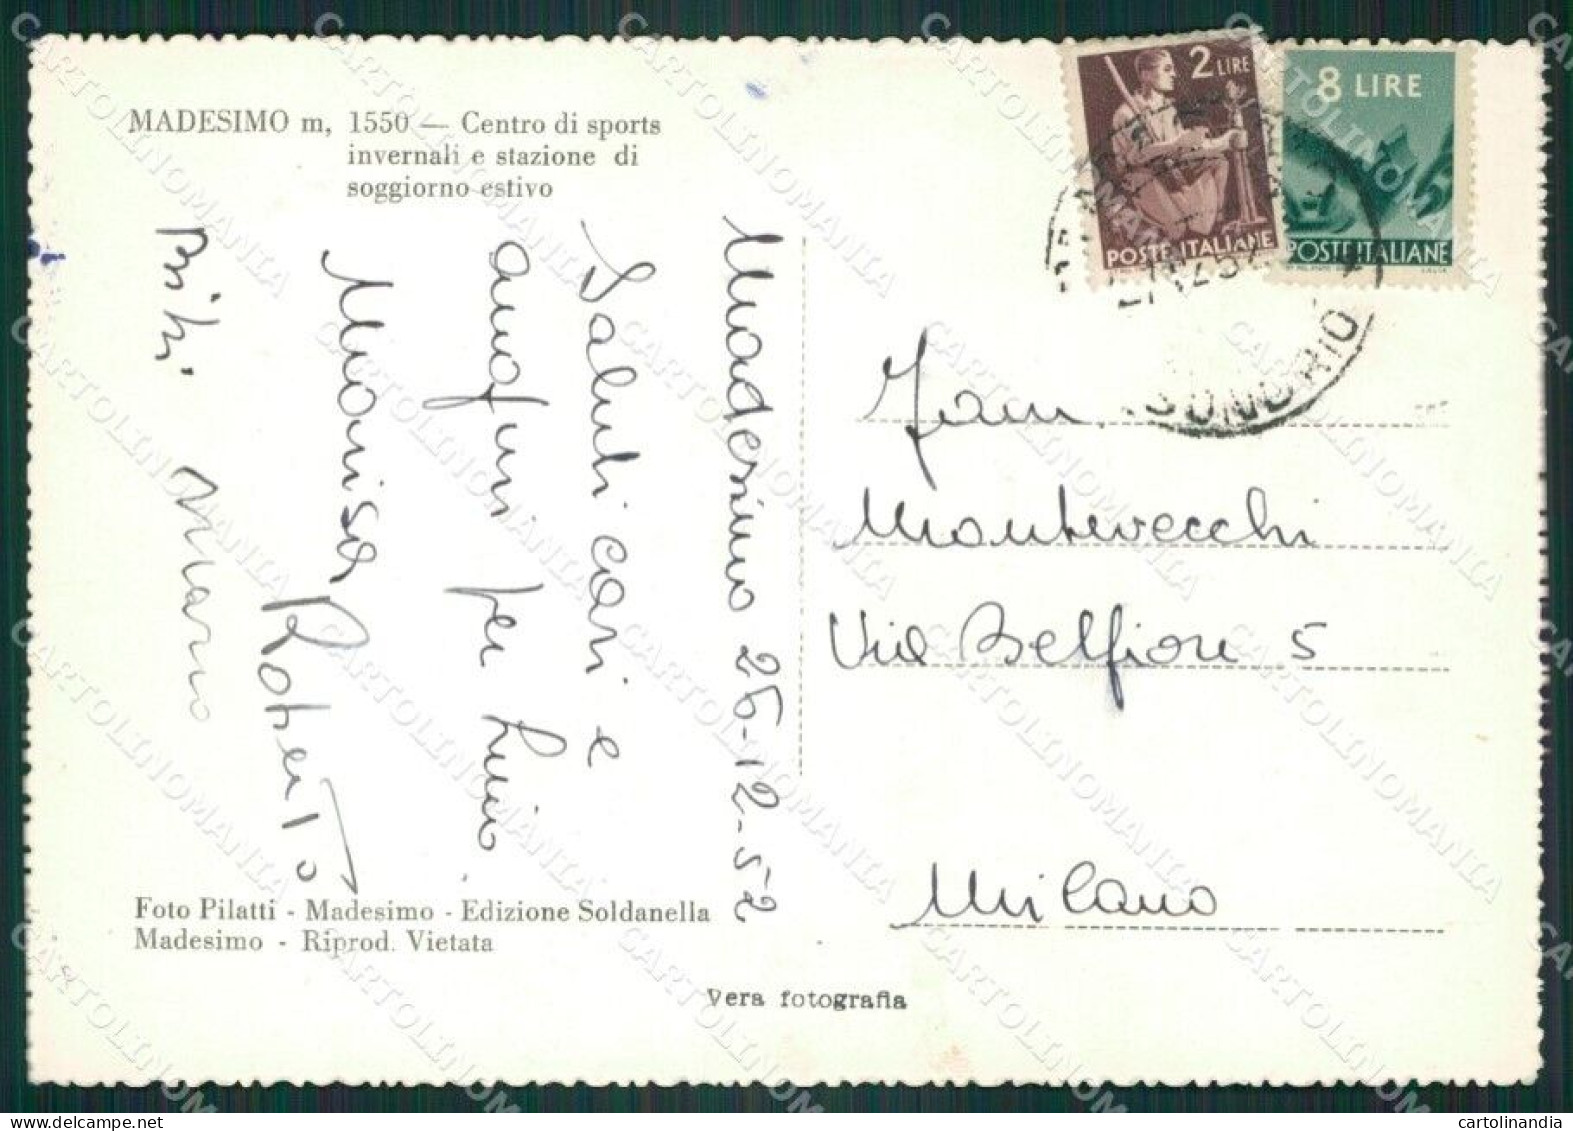 MADESIMO m, 1550 — Centro di sports
invernali e stazione di
soggiorno estivo
2 LIRE
POSTE ITALIANE
8 LIRE
POSTE ITALIANE
SONDRIO
Madesimo 26-12-52
Saluti cari e
auguri per
Marisa
Roberto
Mario
Fam.
Montevecchi
Via Belfiore 5
Milano
Foto Pilatti - Madesimo - Edizione Soldanella
Madesimo - Riprod. Vietata
Vera fotografia
CARTOLINOMANIA
cartolinandia